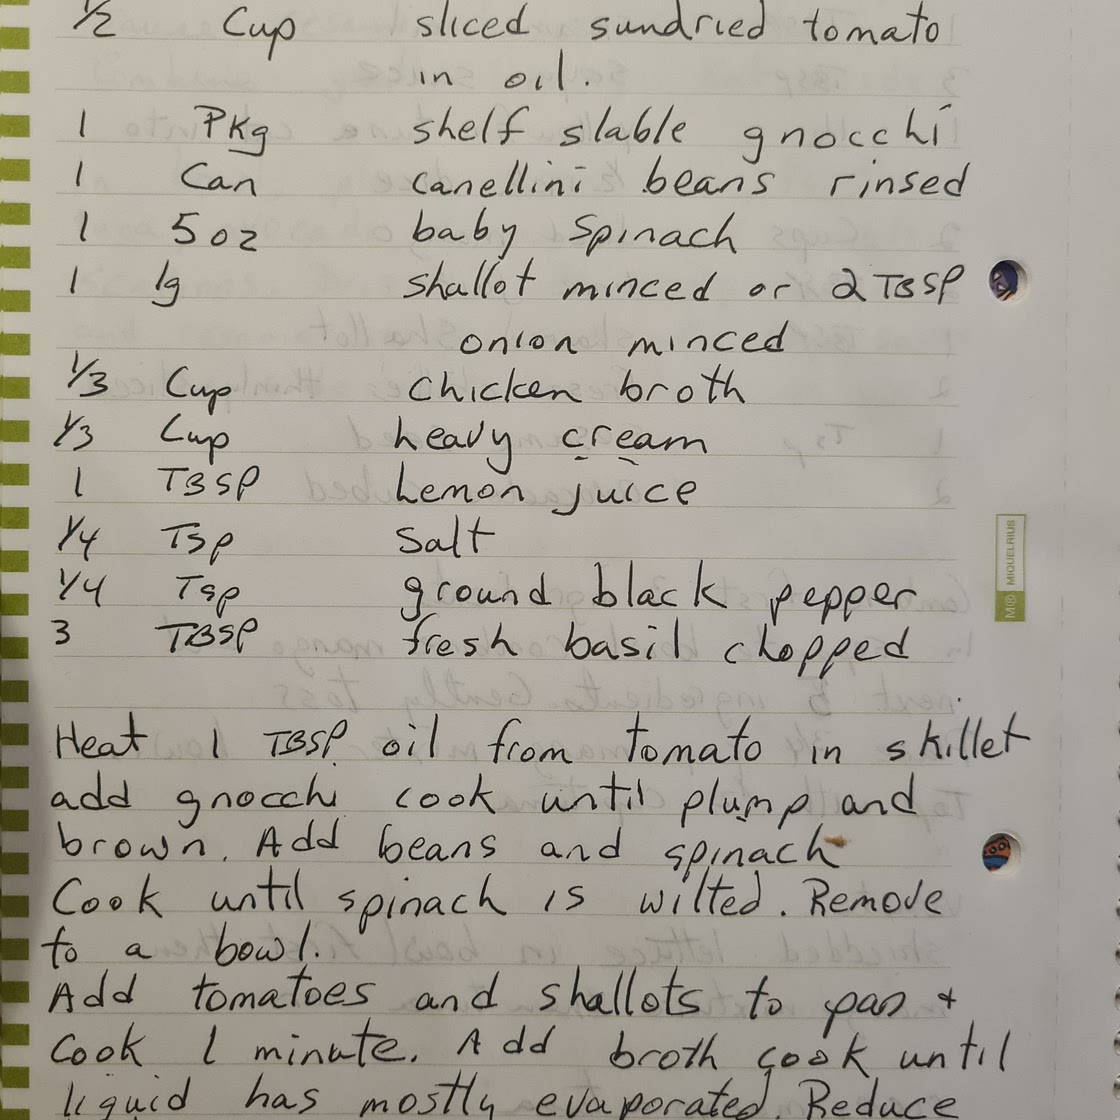 1/2 Cup sliced sundried tomato
in oil.
1 Pkg shelf slable gnocchi
1 Can canellini beans rinsed
1 5oz baby spinach
1 lg shallot minced or 2 TBSP
onion minced
1/3 Cup chicken broth
1/3 Cup heavy cream
1 TBSP Lemon juice
1/4 Tsp salt
1/4 Tsp ground black pepper
3 TBSP fresh basil chopped
M® MIQUELRIUS
Heat 1 TBSP oil from tomato in skillet
add gnocchi cook until plump and
brown. Add beans and spinach
Cook until spinach is wilted. Remove
to a bowl.
Add tomatoes and shallots to pan +
Cook 1 minute. Add broth cook until
liquid has mostly evaporated. Reduce